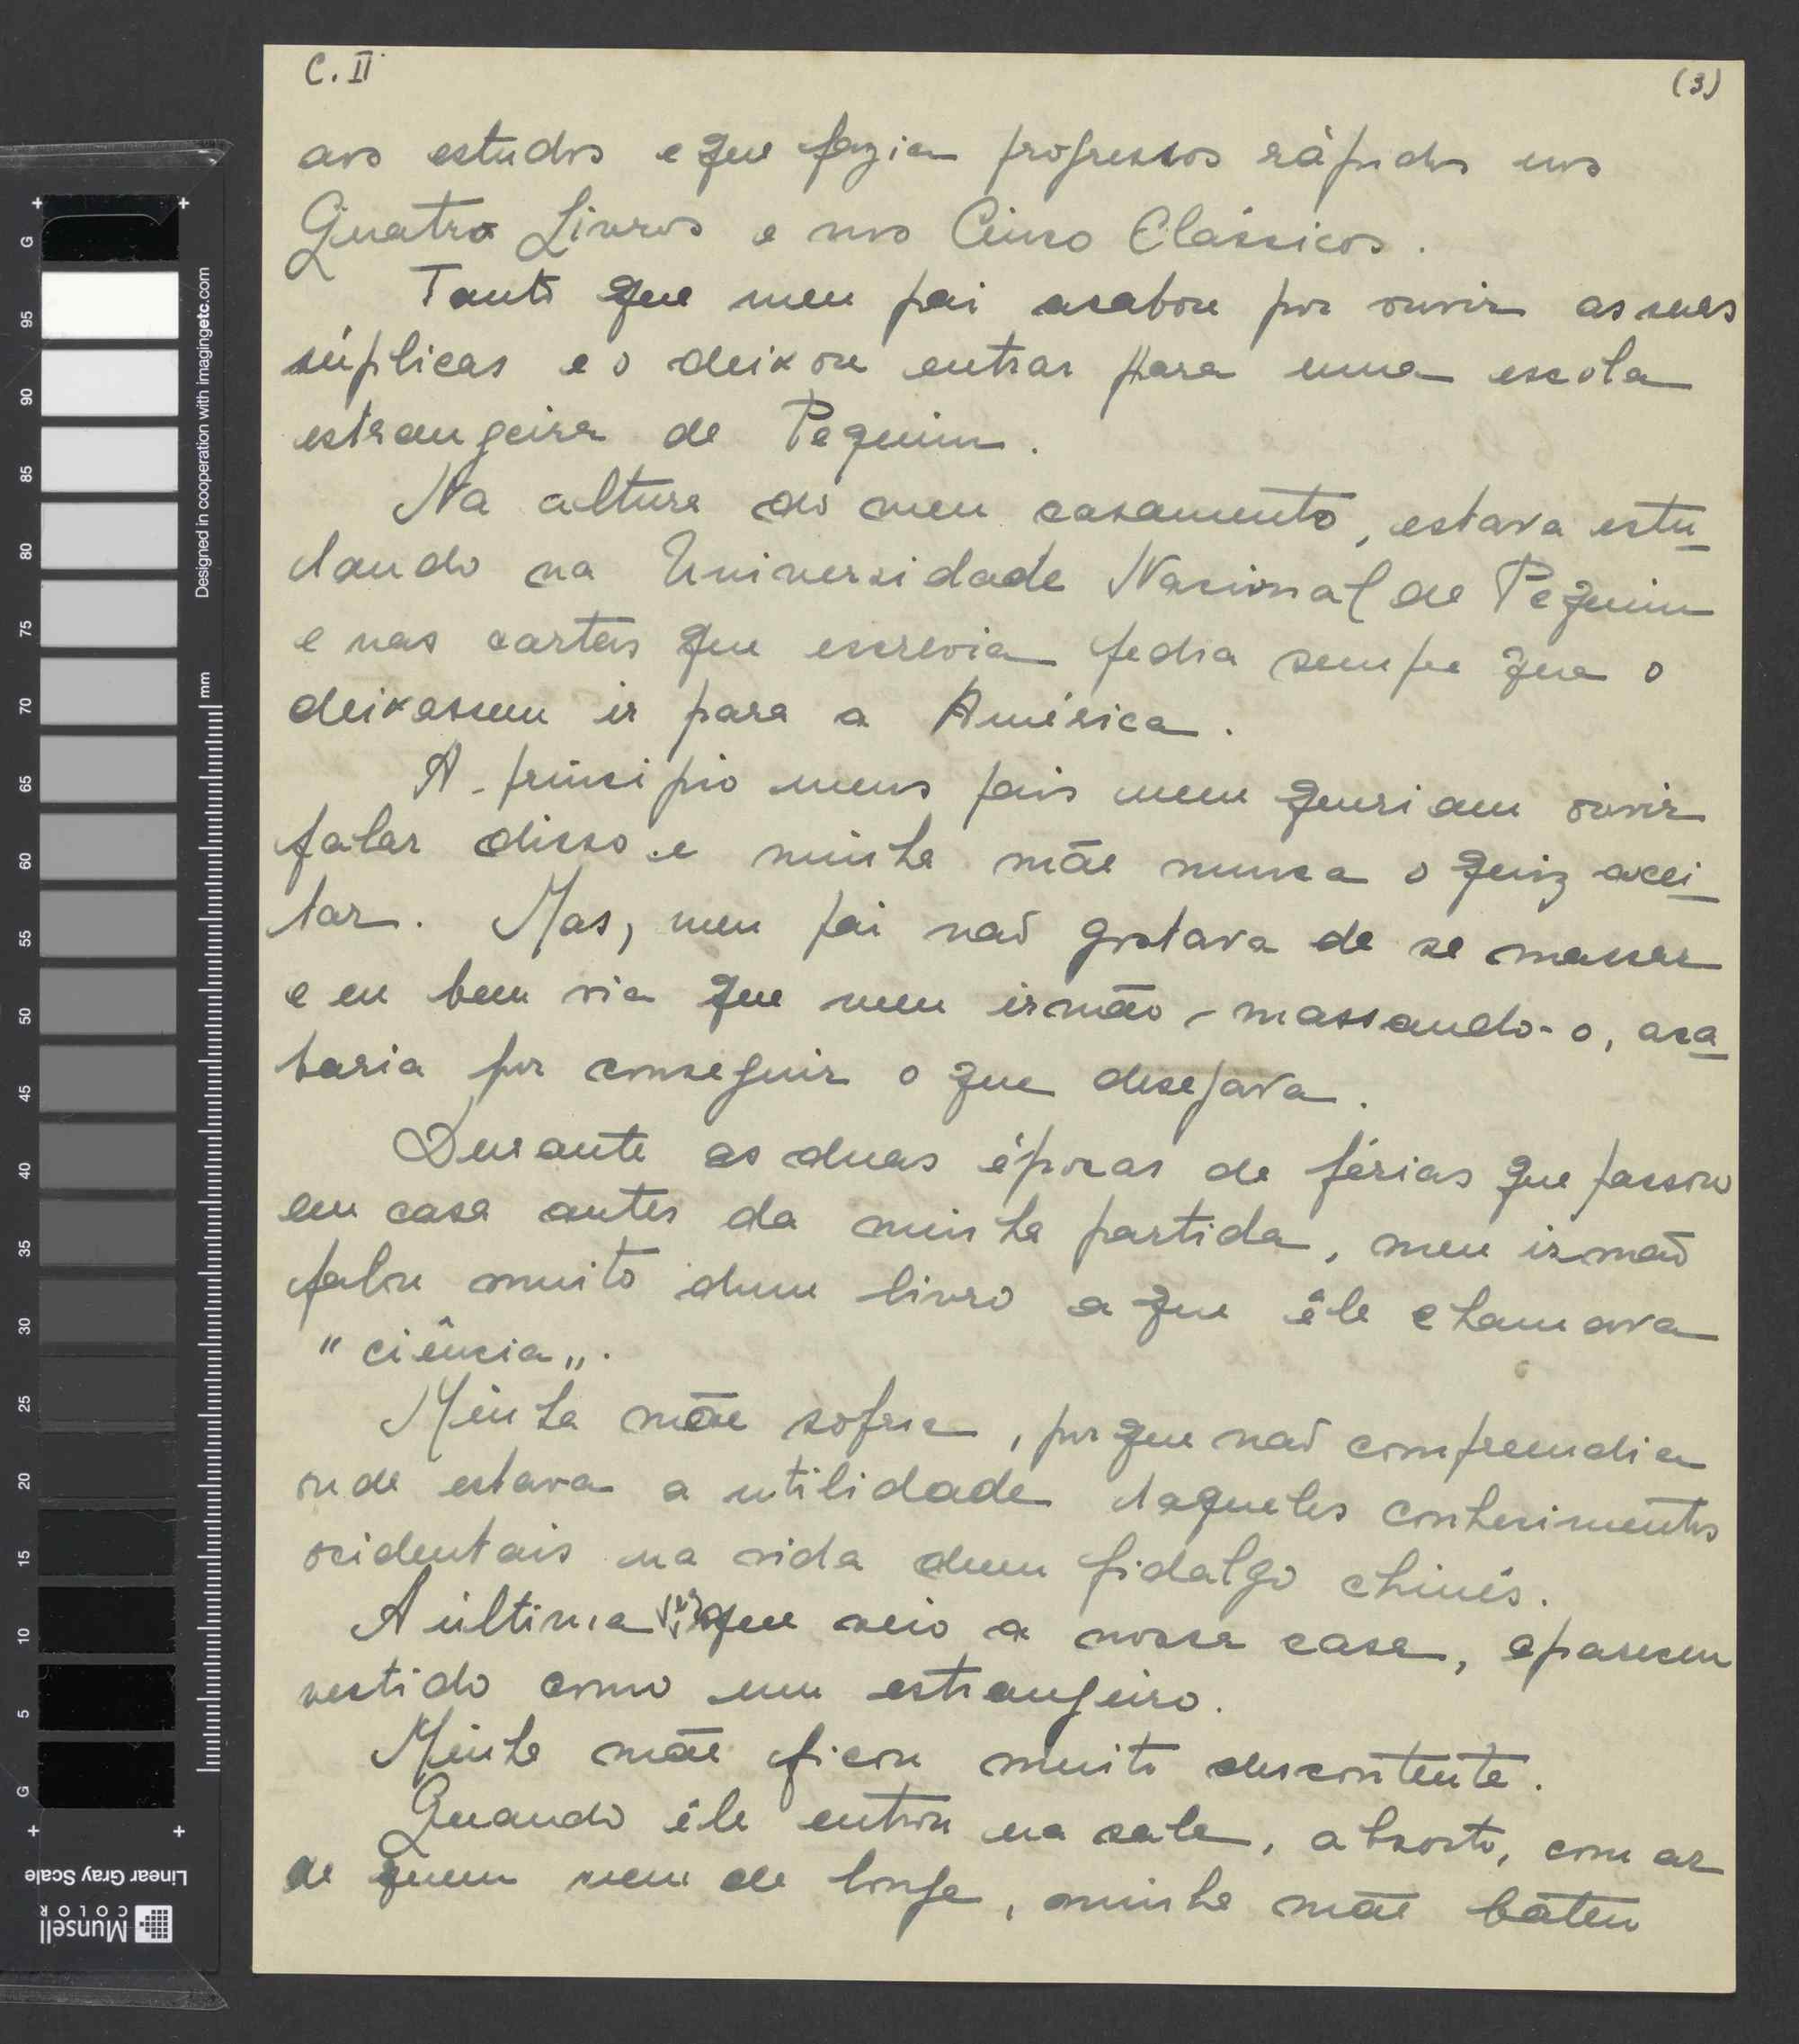 C. II
(3)
aos estudos e que fazia progressos ràpidos nos
Quatro Livros e nos Cinco Clássicos.
Tanto que meu pai acabou por ouvir as suas
súplicas e o deixou entrar para uma escola
estrangeira de Pequim.
Na altura do meu casamento, estava estu-
dando na Universidade Nacional de Pequim
e nas cartas que escrevia pedia sempre que o
deixassem ir para a América.
A princípio meus pais nem queriam ouvir
falar disso e minha mãe nunca o quiz acei-
tar. Mas, meu pai não gostava de se massar
e eu bem via que meu irmão, massando-o, aca-
baria por conseguir o que desejava.
Durante as duas épocas de férias que passou
em casa antes da minha partida, meu irmão
falou muito dum livro a que êle chamava
"ciência".
Minha mãe sofria, porque não compreendia
onde estava a utilidade daqueles conhecimentos
ocidentais na vida dum fidalgo chinês.
A última vez que veio a nossa casa, apareceu
vestido como um estrangeiro.
Minha mãe ficou muito descontente.
Quando êle entrou na sala, absorto, com ar
de quem vem de longe, minha mãe bateu
Designed in cooperation with imagingetc.com
mm
G
95
90
85
80
75
70
65
60
55
50
45
40
35
30
25
20
15
10
5
G
Linear Gray Scale
Munsell
COLOR